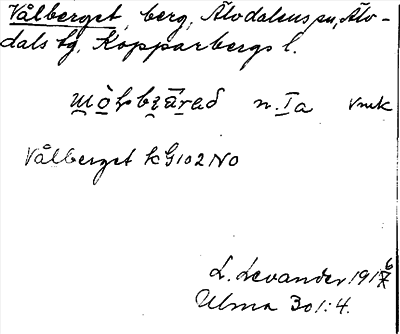 Vålberget, berg, Älvdalens sn, Älv-
dals tg, Kopparbergs l.
n. Ia vnk
Vålberget kG102NO
L. Levander 1916
Ulma 301:4.